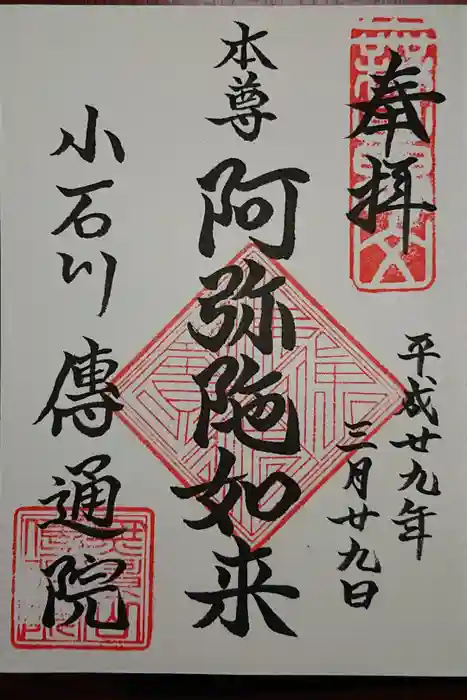 奉拝
平成廿九年
三月廿九日
本尊
阿弥陀如来
小石川
傳通院